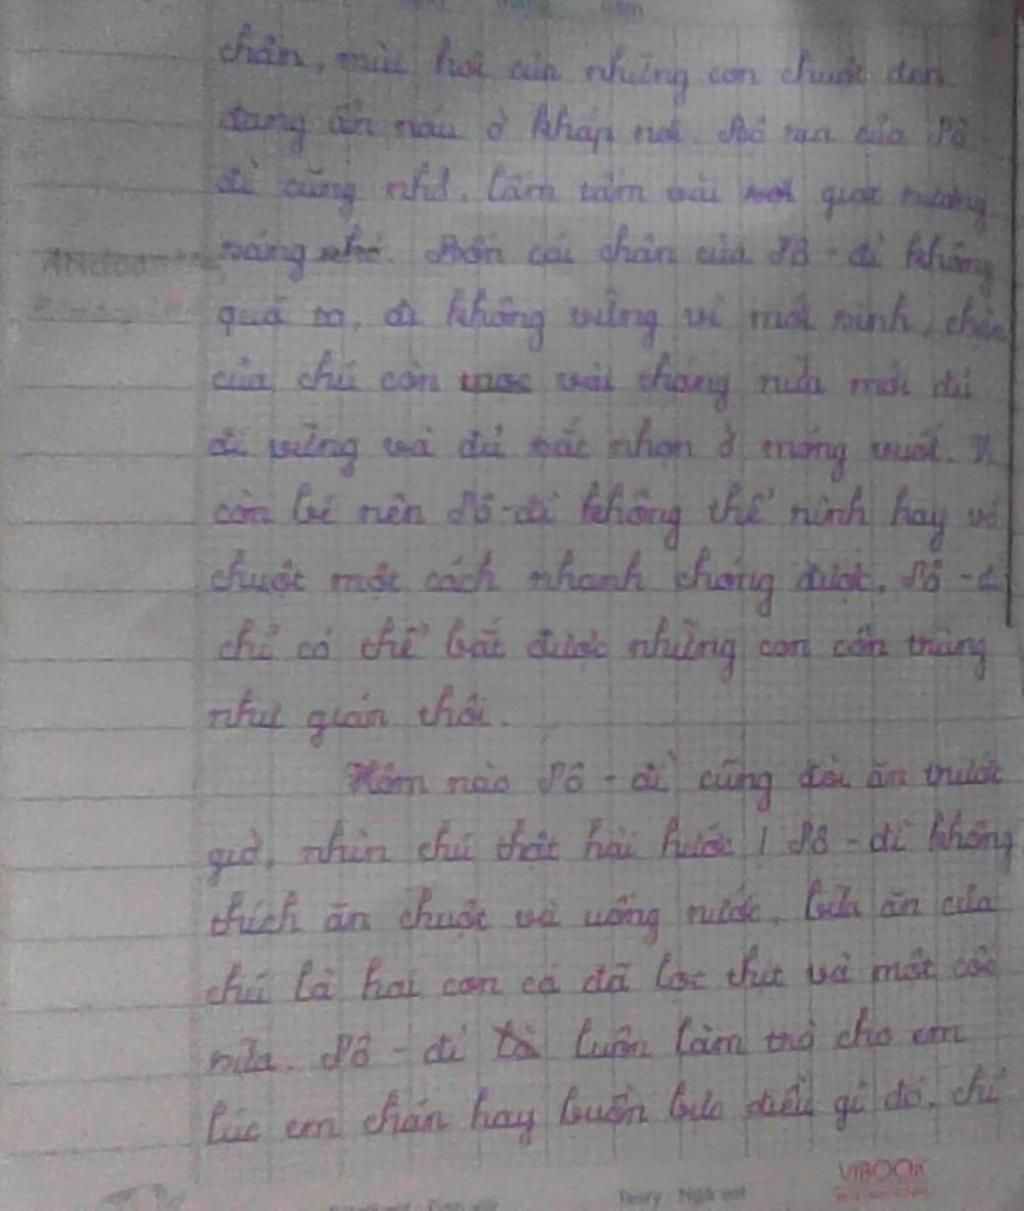 chân, mùi hôi của những con chuột đen
đang ẩn náu ở khắp nơi. của Đô
đi cũng nhỏ, lấm tấm vài
Bốn cái chân của Đô-đi không
quá to, đi không vững vì mới sinh, chân
của chú còn vài tháng nữa mới đủ
đi vững và đủ sắc nhọn ở móng vuốt. Vì
còn bé nên Đô-đi không thể rình hay vồ
chuột một cách nhanh chóng được. Đô-đi
chỉ có thể bắt được những con côn trùng
như gián thôi.
Hôm nào Đô-đi cũng đòi ăn trước
giờ, nhìn chú thật hài hước! Đô-đi không
thích ăn chuột và uống nước, bữa ăn của
chú là hai con cá đã lọc thịt và một cốc
sữa. Đô-đi luôn làm trò cho em
lúc em chán hay buồn bực điều gì đó, chỉ
VIBOOK